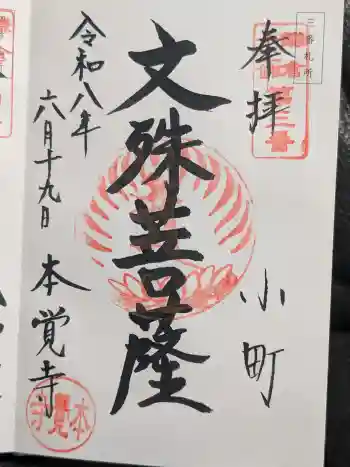 三番札所
奉拝
小町
文殊菩薩
令和八年
六月十九日
本覚寺
本覺寺